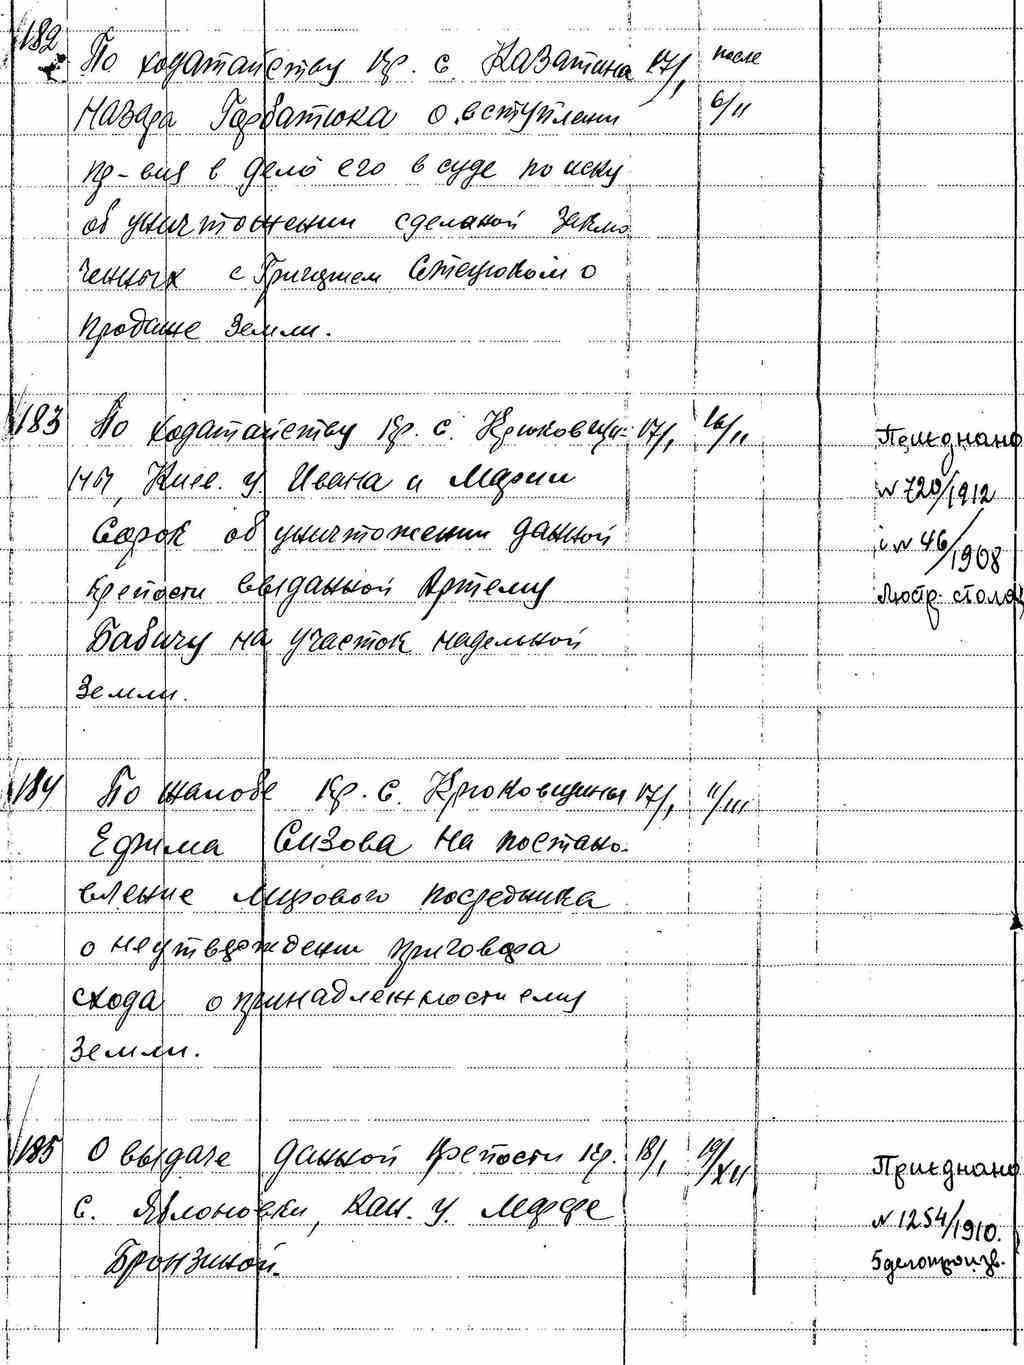 182 По ходатайству кр. с. Казатина 17/I после
Назара Горбатюка о вступлении 6/II
пр-вия в дело его в суде по иску
об уничтожении сделаной заклю
ченных с Грицием Стецюком о
продаже земли.
183 По ходатайству кр. с. Крюковщи- 17/I 16/II Приєднано
ны, Киев. у. Ивана и Марии N 720/1912
Сорок об уничтожении данной і N 46/1908
крепости выданной Артему Люстр. стола
Бабичу на участок надельной
земли.
184 По жалобе кр. с. Крюковщины 17/I 11/III
Ефима Сизова на постано-
вление мирового посредника
о неутверждении приговора
схода о принадлежности ему
земли.
185 О выдаче данной крепости кр. 18/I 19/XII Приєднано
с. Яблоновки, Кан. у. Марфе N 1254/1910.
Бронзиной. 5 делопроизв.